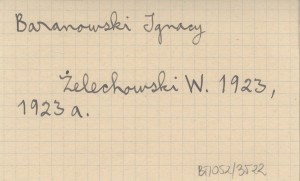 Baranowski Ignacy
Żelechowski W. 1923,
1923 a.